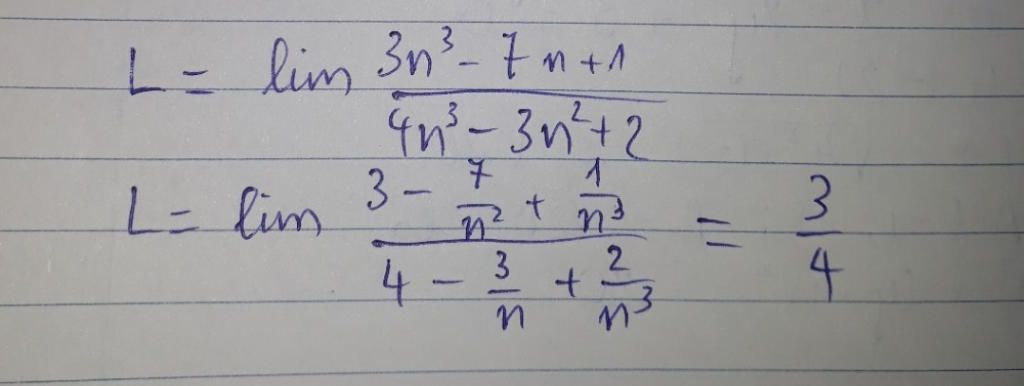 L = lim (3n³ - 7n + 1) / (4n³ - 3n² + 2)
L = lim (3 - 7/n² + 1/n³) / (4 - 3/n + 2/n³) = 3/4